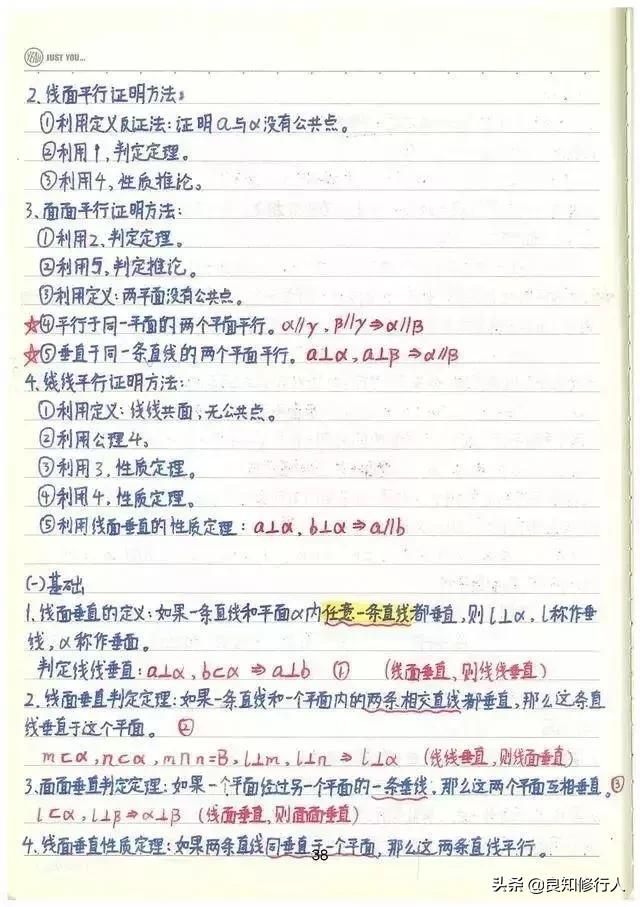 YEAH JUST YOU...
2. 线面平行证明方法:
①利用定义反证法: 证明a与α没有公共点。
②利用1, 判定定理。
③利用4, 性质推论。
3. 面面平行证明方法:
①利用2、判定定理。
②利用5, 判定推论。
③利用定义: 两平面没有公共点。
★④平行于同一平面的两个平面平行。α∥γ, β∥γ⇒α∥β
★⑤垂直于同一条直线的两个平面平行。a⊥α, a⊥β⇒α∥β
4. 线线平行证明方法:
①利用定义: 线线共面, 无公共点。
②利用公理4。
③利用3, 性质定理。
④利用4, 性质定理。
⑤利用线面垂直的性质定理: a⊥α, b⊥α⇒a∥b
(一)基础
1. 线面垂直的定义: 如果一条直线和平面α内任意一条直线都垂直, 则l⊥α, l称作垂
线, α称作垂面。
判定线线垂直: a⊥α, b⊂α ⇒ a⊥b ① (线面垂直, 则线线垂直)
2. 线面垂直判定定理: 如果一条直线和一个平面内的两条相交直线都垂直, 那么这条直
线垂直于这个平面。 ②
m⊂α, n⊂α, m∩n=B, l⊥m, l⊥n ⇒ l⊥α (线线垂直, 则线面垂直)
3. 面面垂直判定定理: 如果一个平面经过另一个平面的一条垂线, 那么这两个平面互相垂直。③
l⊂α, l⊥β⇒α⊥β (线面垂直, 则面面垂直)
4. 线面垂直性质定理: 如果两条直线同垂直于一个平面, 那么这两条直线平行。
38
头条 @良知修行人